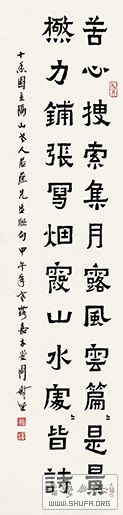 苦心搜索集月露風雲篇〃是景
極力鋪張寫烟霞山水處〃皆詩
十香園主隔山老人居廉先生聯句甲午年
www.SHUFA.org